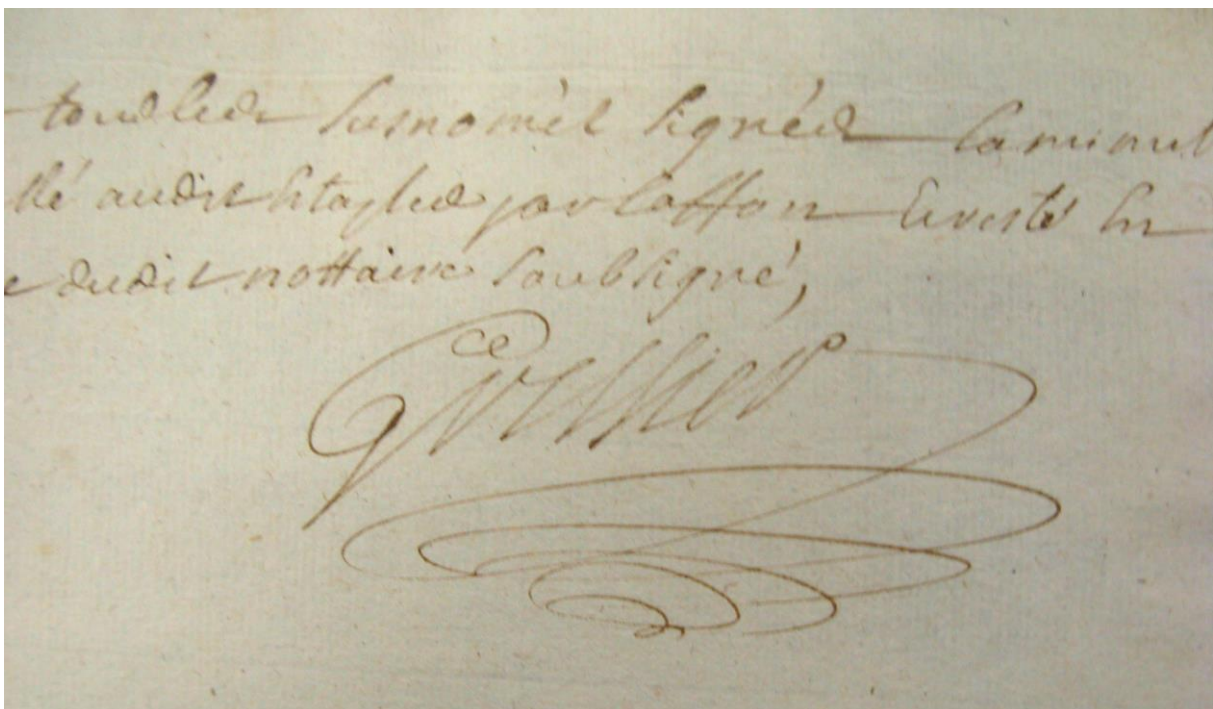 tous les susnomés signées la minut
llé audit Estaples par Laffon Et resté En
e dudit nottaire soubsigné,